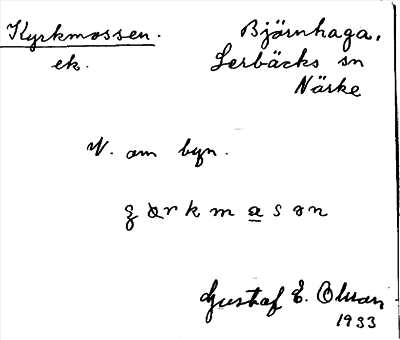 Kyrkmossen.
ek.
Björnhaga,
Lerbäcks sn
Närke
V. om byn.
Gustaf E. Olsson
1933